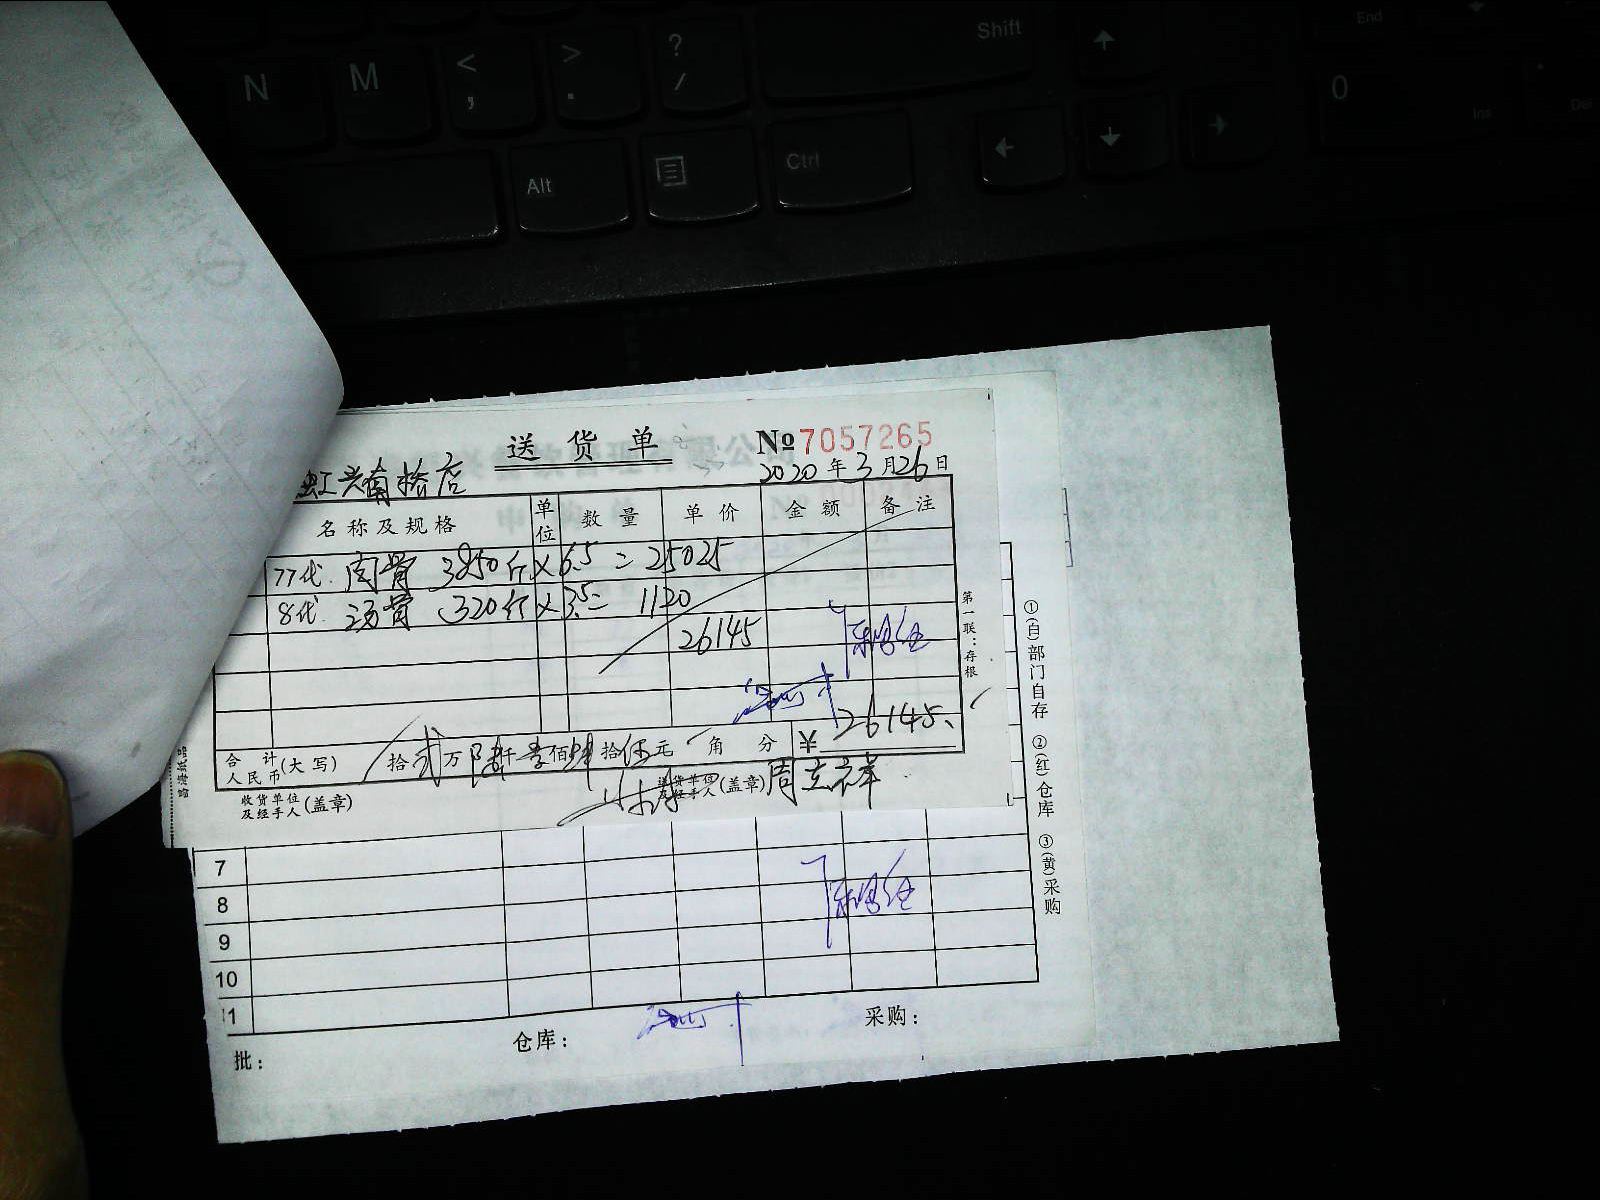 N M < , > . ? / Shift End
Alt Ctrl 0 Ins Del
送货单 № 7057265
2020年3月26日
虹兴南桥店
名称及规格 单位 数量 单价 金额 备注
77代 肉骨 3850斤×6.5=25025
8代 汤骨 320斤×3.5=1120
26145
第一联：存根
合计人民币(大写) 拾贰万陆仟壹佰肆拾伍元 角 分 ¥26145.
收货单位及经手人(盖章) 送货单位及经手人(盖章)
7
8
9
10
11
批： 仓库： 采购：
①(白)部门自存 ②(红)仓库 ③(黄)采购